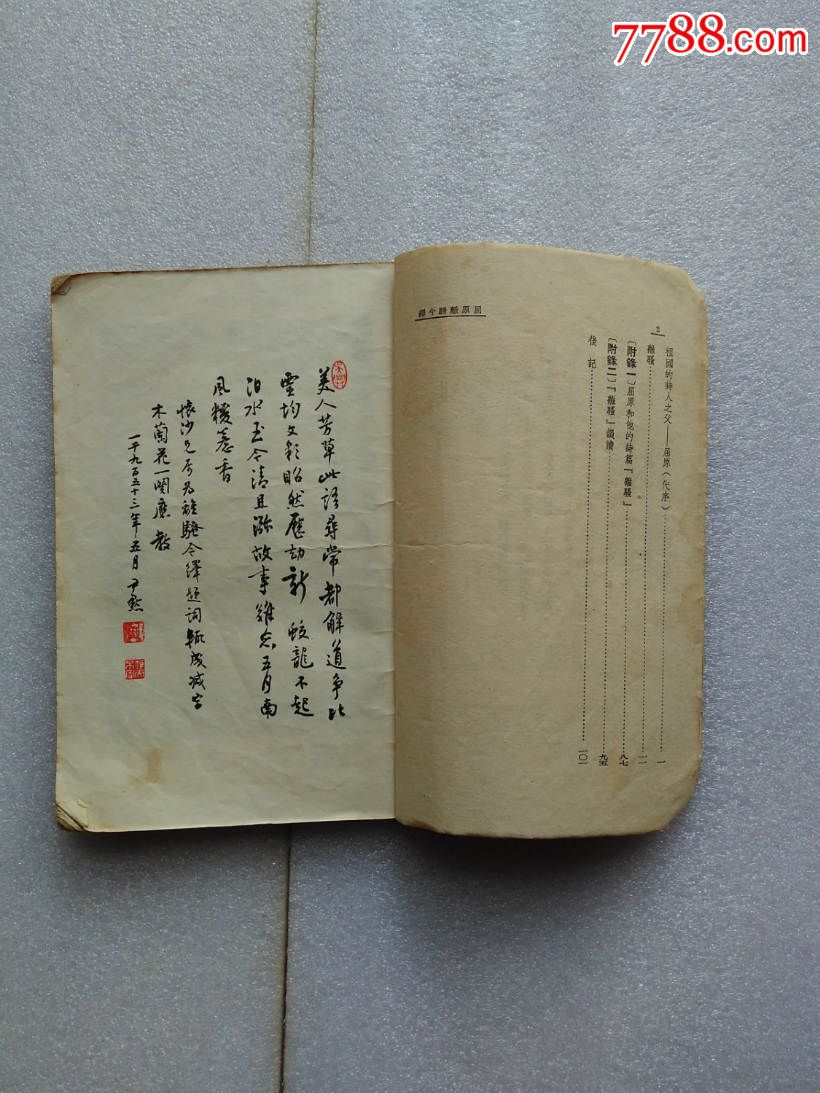 7788.com
屈原離騷今繹
2
祖國的詩人之父——屈原（代序）……一
離騷……一一
〔附錄一〕屈原和他的詩篇『離騷』……八七
〔附錄二〕『離騷』讀……九五
後記……一〇一
美人芳草此語尋常都解道爭比
靈均文彩昭然歷劫新 蛟龍不起
汨水至今清且瀰故事難忘五月南
風糉香
懷沙為離騷今繹題詞輒成减字
木蘭花一闋應教
一千九百五十三年五月 尹默